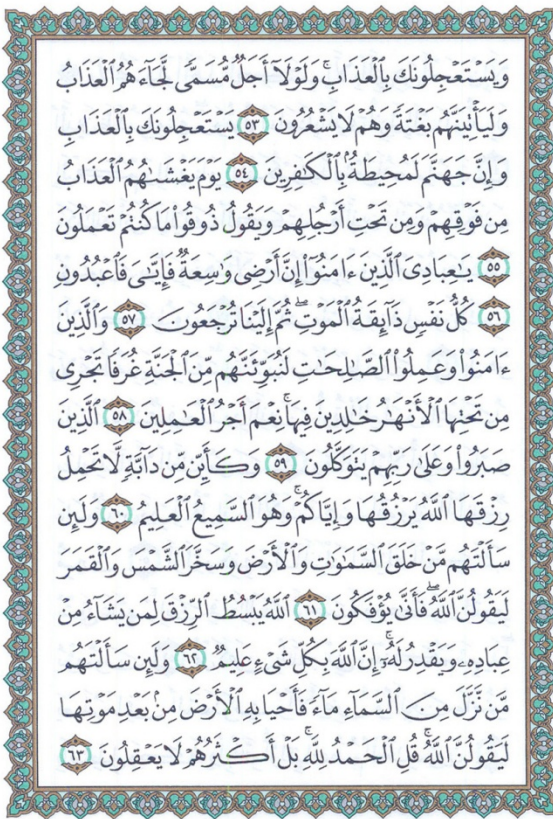 وَيَسْتَعْجِلُونَكَ بِٱلْعَذَابِ ۚ وَلَوْلَآ أَجَلٌ مُّسَمًّى لَّجَآءَهُمُ ٱلْعَذَابُ
وَلَيَأْتِيَنَّهُم بَغْتَةً وَهُمْ لَا يَشْعُرُونَ ٥٣ يَسْتَعْجِلُونَكَ بِٱلْعَذَابِ
وَإِنَّ جَهَنَّمَ لَمُحِيطَةٌۢ بِٱلْكَٰفِرِينَ ٥٤ يَوْمَ يَغْشَىٰهُمُ ٱلْعَذَابُ
مِن فَوْقِهِمْ وَمِن تَحْتِ أَرْجُلِهِمْ وَيَقُولُ ذُوقُوا۟ مَا كُنتُمْ تَعْمَلُونَ
٥٥ يَٰعِبَادِىَ ٱلَّذِينَ ءَامَنُوٓا۟ إِنَّ أَرْضِى وَٰسِعَةٌ فَإِيَّٰىَ فَٱعْبُدُونِ
٥٦ كُلُّ نَفْسٍ ذَآئِقَةُ ٱلْمَوْتِ ۖ ثُمَّ إِلَيْنَا تُرْجَعُونَ ٥٧ وَٱلَّذِينَ
ءَامَنُوا۟ وَعَمِلُوا۟ ٱلصَّٰلِحَٰتِ لَنُبَوِّئَنَّهُم مِّنَ ٱلْجَنَّةِ غُرَفًا تَجْرِى
مِن تَحْتِهَا ٱلْأَنْهَٰرُ خَٰلِدِينَ فِيهَا ۚ نِعْمَ أَجْرُ ٱلْعَٰمِلِينَ ٥٨ ٱلَّذِينَ
صَبَرُوا۟ وَعَلَىٰ رَبِّهِمْ يَتَوَكَّلُونَ ٥٩ وَكَأَيِّن مِّن دَآبَّةٍ لَّا تَحْمِلُ
رِزْقَهَا ٱللَّهُ يَرْزُقُهَا وَإِيَّاكُمْ ۚ وَهُوَ ٱلسَّمِيعُ ٱلْعَلِيمُ ٦٠ وَلَئِن
سَأَلْتَهُم مَّنْ خَلَقَ ٱلسَّمَٰوَٰتِ وَٱلْأَرْضَ وَسَخَّرَ ٱلشَّمْسَ وَٱلْقَمَرَ
لَيَقُولُنَّ ٱللَّهُ ۖ فَأَنَّىٰ يُؤْفَكُونَ ٦١ ٱللَّهُ يَبْسُطُ ٱلرِّزْقَ لِمَن يَشَآءُ مِنْ
عِبَادِهِۦ وَيَقْدِرُ لَهُۥٓ ۚ إِنَّ ٱللَّهَ بِكُلِّ شَىْءٍ عَلِيمٌ ٦٢ وَلَئِن سَأَلْتَهُم
مَّن نَّزَّلَ مِنَ ٱلسَّمَآءِ مَآءً فَأَحْيَا بِهِ ٱلْأَرْضَ مِنۢ بَعْدِ مَوْتِهَا
لَيَقُولُنَّ ٱللَّهُ ۚ قُلِ ٱلْحَمْدُ لِلَّهِ ۚ بَلْ أَكْثَرُهُمْ لَا يَعْقِلُونَ ٦٣